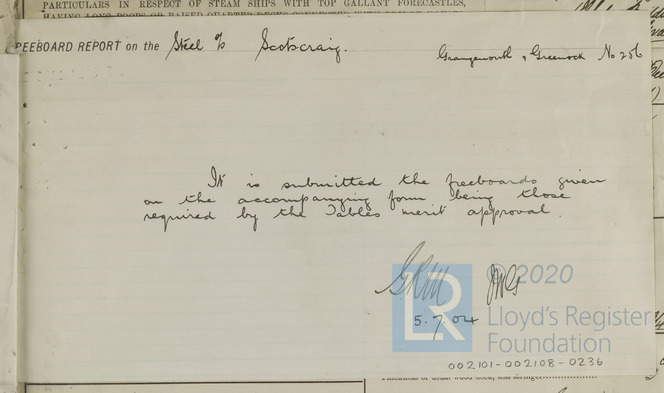 PARTICULARS IN RESPECT OF STEAM SHIPS WITH TOP GALLANT FORECASTLES,
REEBOARD REPORT on the Steel S/S Scotscraig.
Grangemouth & Greenock No 256
It is submitted the freeboards given
on the accompanying form being those
required by the Tables merit approval.
5.7.04
LR
© 2020
Lloyd's Register
Foundation
002101-002108-0236